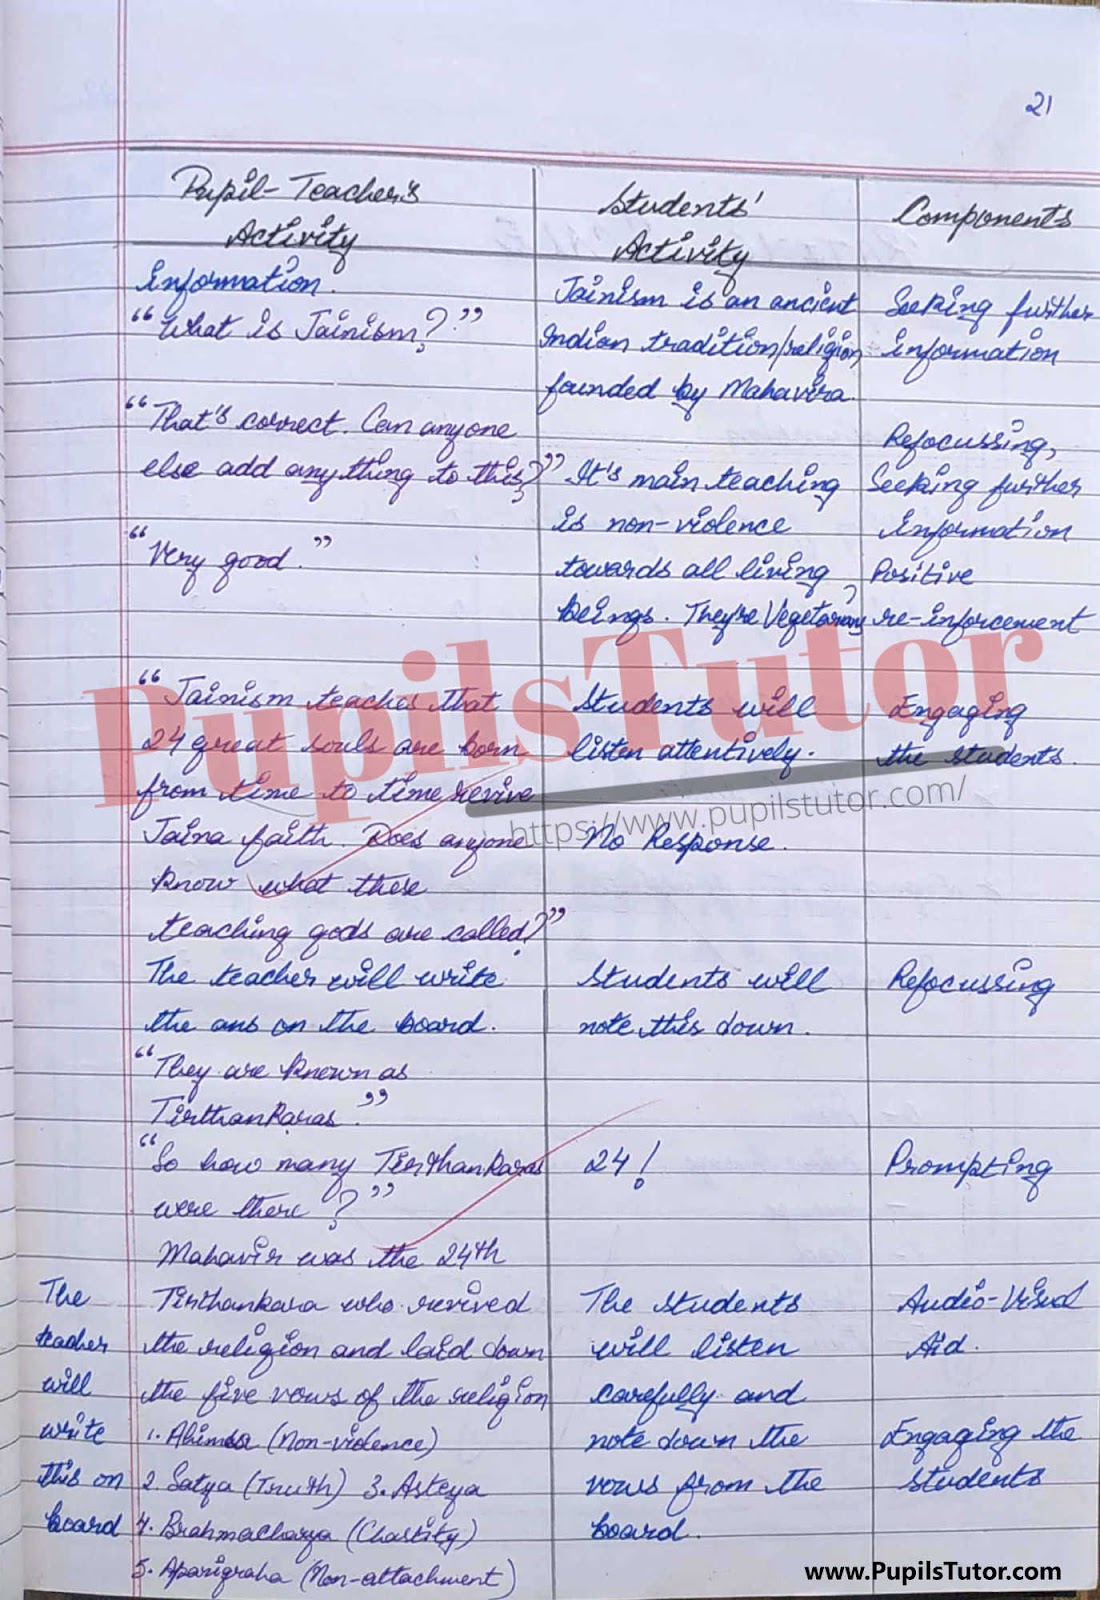 21
Pupil-Teacher's
Activity
Students'
Activity
Components
Information.
"What is Jainism?"
Jainism is an ancient
Indian tradition/religion
founded by Mahavira.
Seeking further
information
"That's correct. Can anyone
else add anything to this?"
It's main teaching
is non-violence
towards all living
beings. They're Vegetarian
Refocussing,
Seeking further
information
"Very good."
Positive
re-inforcement
"Jainism teaches that
24 great souls are born
from time to time revive
Jaina faith. Does anyone
know what these
teaching gods are called?"
Students will
listen attentively.
No Response.
Engaging
the students.
The teacher will write
the ans on the board.
Students will
note this down.
Refocussing
"They are known as
Tirthankaras."
"So how many Tirthankaras
were there?"
24!
Prompting
Mahavir was the 24th
Tirthankara who revived
the religion and laid down
the five vows of the religion
1. Ahimsa (Non-violence)
2. Satya (Truth) 3. Asteya
4. Brahmacharya (Chastity)
5. Aparigraha (Non-attachment)
The
teacher
will
write
this on
board
The students
will listen
carefully and
note down the
vows from the
board.
Audio-Visual
Aid.
Engaging the
students
PupilsTutor
https://www.pupilstutor.com/
www.PupilsTutor.com